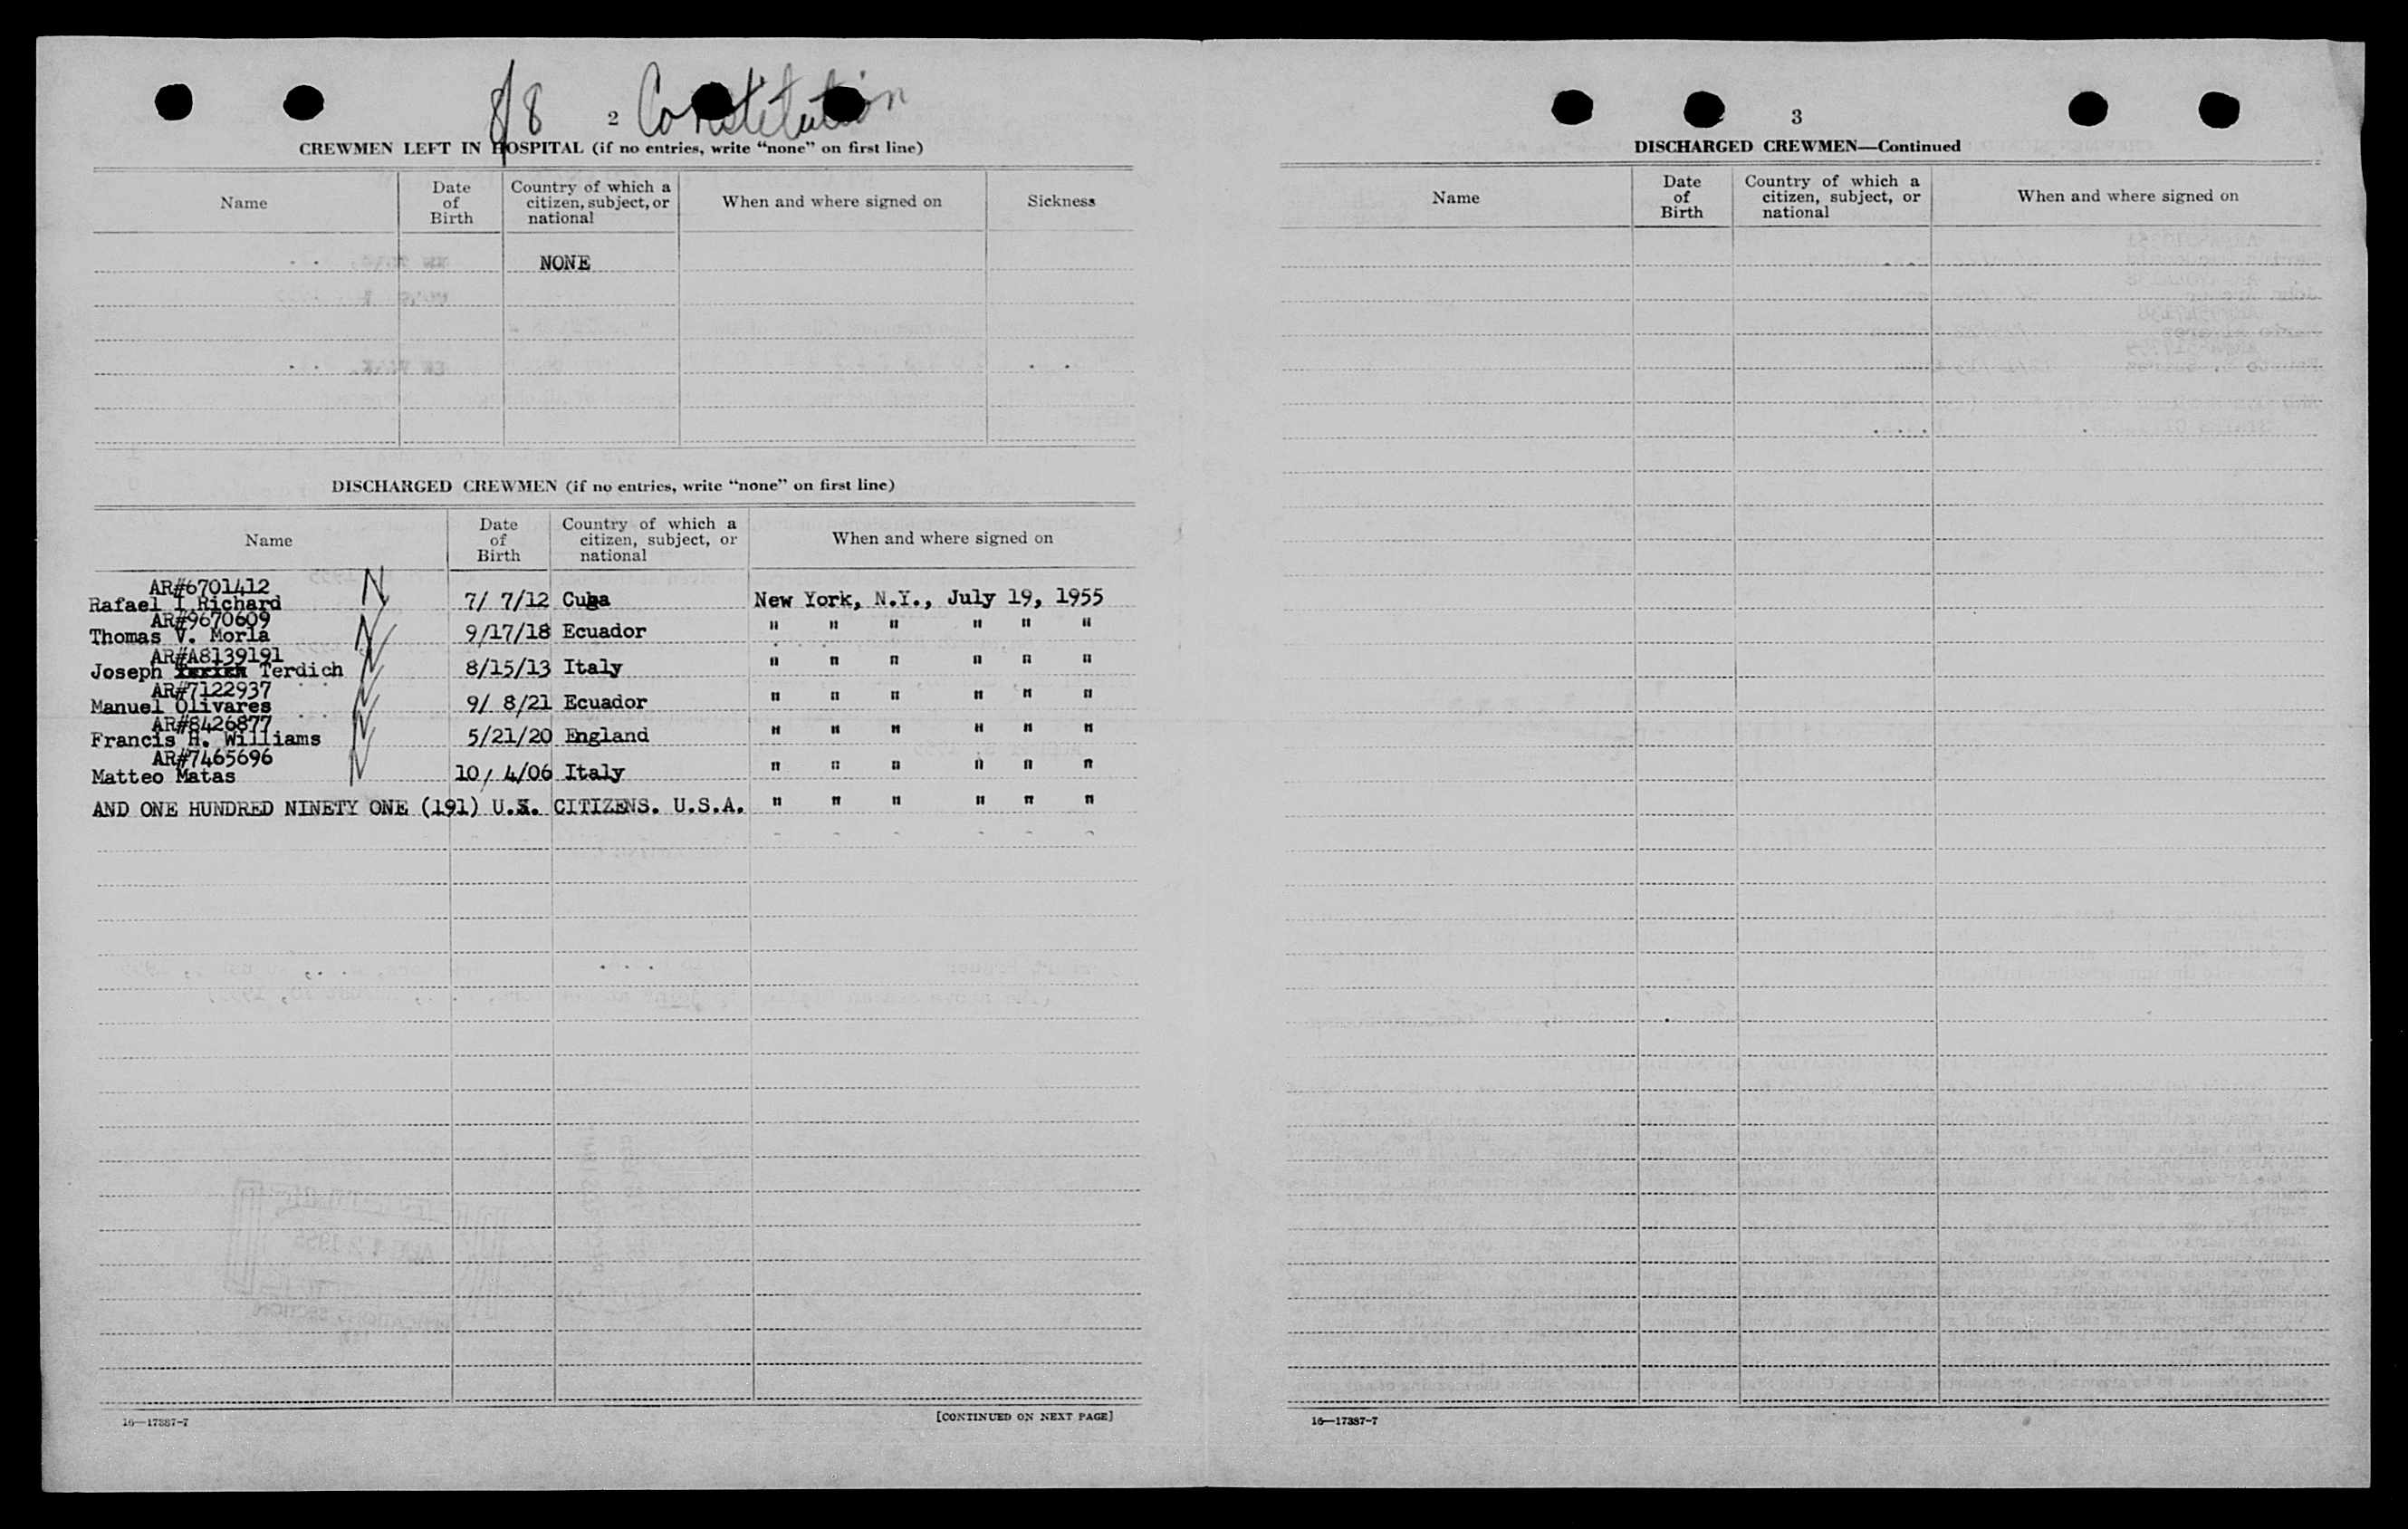 8/8 2 Constitution
CREWMEN LEFT IN HOSPITAL (if no entries, write “none” on first line)
Name
Date of Birth
Country of which a citizen, subject, or national
When and where signed on
Sickness
NONE
DISCHARGED CREWMEN (if no entries, write “none” on first line)
Name
Date of Birth
Country of which a citizen, subject, or national
When and where signed on
AR#6701412
Rafael I Richard N 7/ 7/12 Cuba New York, N.Y., July 19, 1955
AR#9670609
Thomas V. Morla N 9/17/18 Ecuador " " " " " "
AR#A8139191
Joseph Terdich N 8/15/13 Italy " " " " " "
AR#7122937
Manuel Olivares N 9/ 8/21 Ecuador " " " " " "
AR#8426877
Francis H. Williams N 5/21/20 England " " " " " "
AR#7465696
Matteo Matas N 10/ 4/06 Italy " " " " " "
AND ONE HUNDRED NINETY ONE (191) U.S. CITIZENS. U.S.A. " " " " " "
16—17387-7
[CONTINUED ON NEXT PAGE]
3
DISCHARGED CREWMEN—Continued
Name
Date of Birth
Country of which a citizen, subject, or national
When and where signed on
16—17387-7